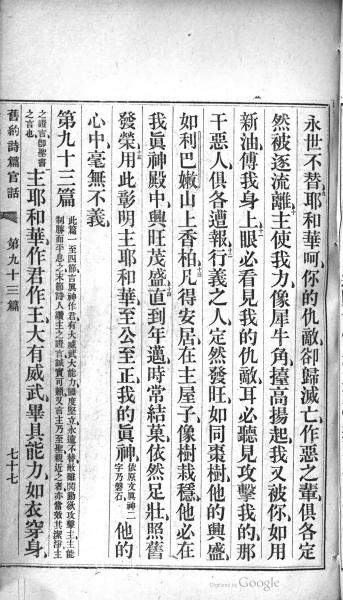 永世不替耶和華呵你的仇敵卻歸滅亡作惡之輩俱各定
然被逐流離主使我力像犀牛角擡高揚起我又被你如用
新油傅我身上眼必看見我的仇敵耳必聽見攻擊我的那
干惡人俱各遭報行義之人定然發旺如同棗樹他的興盛
如利巴嫩山上香柏凡得安居在主屋子像樹栽穩他必在
我眞神殿中興旺茂盛直到年邁時常結菓依然足壯照舊
發榮用此彰明主耶和華至公至正我的眞神 依原文眞神二字乃磐石 他的
心中毫無不義
第九十三篇 此篇一至四節言眞神作君有大威武大能力國度堅立永遠不替敵雖鬨動欲攻擊主主能制勝而平息之末節詩人讚主之證言誠實可賴又言主乃至聖親近之者亦當效其潔淨主
之證言卽聖書之言也 主耶和華作君作王大有威武畢具能力如衣穿身
舊約詩篇官話 第九十三篇 七十七
Digitized by Google